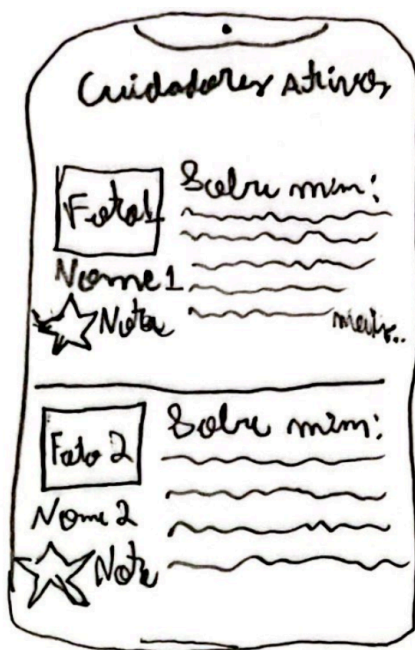 Cuidadores Ativos
Foto 1
Sobre mim:
Nome 1
Nota
mais...
Foto 2
Sobre mim:
Nome 2
Nota